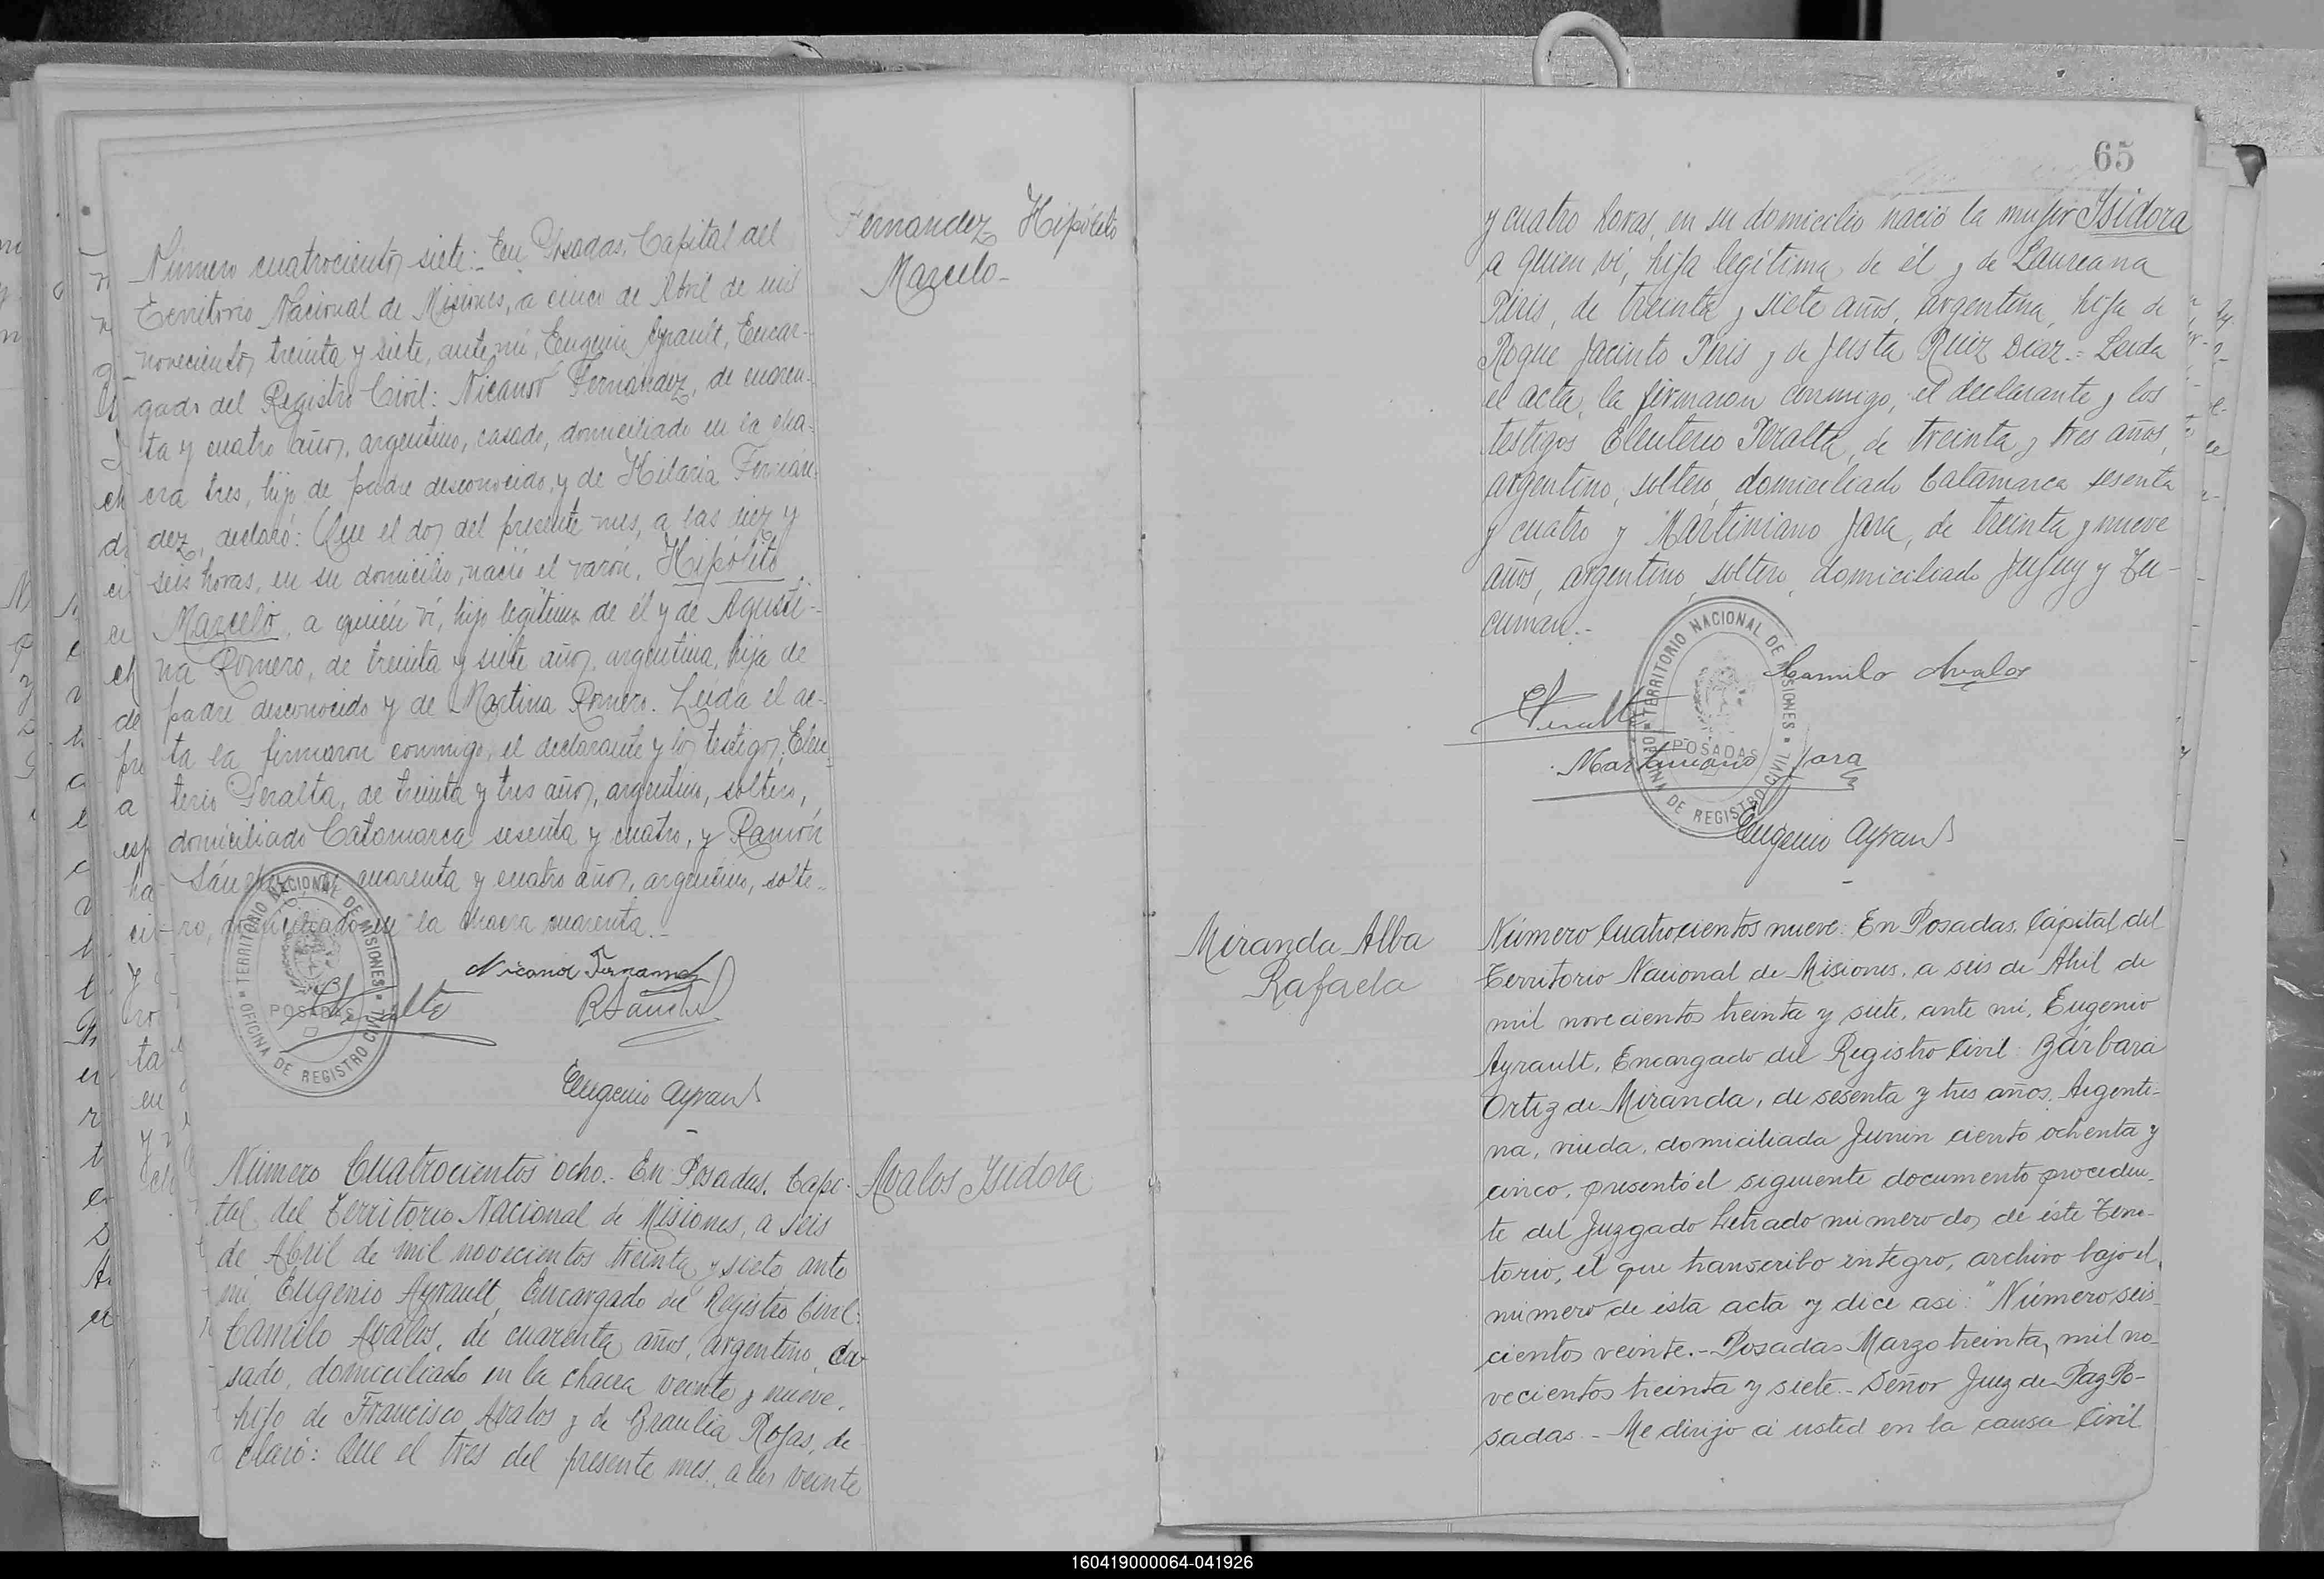 Fernandez Hipólito
Marcelo-
Número cuatrocientos siete:- En Posadas, Capital del
Territorio Nacional de Misiones, a cinco de Abril de mil
novecientos treinta y siete, ante mi, Eugenio Ayrault, Encar-
gado del Registro Civil: Nicanor Fernández, de cuaren-
ta y cuatro años, argentino, casado, domiciliado en la cha-
cra tres, hijo de padre desconocido y de Hilaria Fernán-
dez, declaró: Que el dos del presente mes, a las diez y
seis horas, en su domicilio, nació el varón, Hipólito
Marcelo, a quién ví, hijo legítimo de él y de Agusti-
na Romero, de treinta y siete años, argentina, hija de
padre desconocido y de Martina Romero. Leída el ac-
ta la firmaron conmigo, el declarante y los testigos, Eleu-
terio Peralta, de treinta y tres años, argentino, soltero,
domiciliado Catamarca sesenta y cuatro, y Ramón
Sánchez, de cuarenta y cuatro años, argentino, solte-
ro, domiciliado en la chacra cuarenta.-
Nicanor Fernandez
Peralta
RSanchez
Eugenio Ayrault
TERRITORIO NACIONAL DE MISIONES
POSADAS
OFICINA DE REGISTRO CIVIL
Avalos Isidora
Número Cuatrocientos ocho.- En Posadas, Capi-
tal del Territorio Nacional de Misiones, a seis
de Abril de mil novecientos treinta y siete, ante
mi Eugenio Ayrault, Encargado del Registro Civil:
Camilo Avalos, de cuarenta años, argentino, ca-
sado, domiciliado en la chacra veinte y nueve,
hijo de Francisco Avalos y de Braulia Rojas, de
claró: Que el tres del presente mes, a las veinte
65
y cuatro horas, en su domicilio nació la mujer Isidora
a quien vi, hija legítima de él y de Laureana
Piris, de treinta y siete años, argentina, hija de
Roque Jacinto Piris y de Justa Ruiz Diaz.- Leida
el acta, la firmaron conmigo, el declarante y los
testigos Eleuterio Peralta, de treinta y tres años,
argentino, soltero, domiciliado Catamarca sesenta
y cuatro y Martiniano Jara, de treinta y nueve
años, argentino, soltero, domiciliado Jujuy y Tu-
cumán.-
Camilo Avalos
Peralta
Martiniano Jara
Eugenio Ayrault
TERRITORIO NACIONAL DE MISIONES
POSADAS
OFICINA DE REGISTRO CIVIL
Miranda Alba
Rafaela
Número Cuatrocientos nueve: En Posadas, Capital del
Territorio Nacional de Misiones, a seis de Abril de
mil novecientos treinta y siete, ante mi, Eugenio
Ayrault, Encargado del Registro Civil: Bárbara
Ortiz de Miranda, de sesenta y tres años, Argenti-
na, viuda, domiciliada Junin ciento ochenta y
cinco, presentó el siguiente documento proceden-
te del Juzgado Letrado número dos de éste Terri-
torio, el que transcribo integro, archivo bajo el
número de esta acta y dice asi: "Número seis
cientos veinte.- Posadas Marzo treinta, mil no-
vecientos treinta y siete.- Señor Juez de Paz Po-
sadas.- Me dirijo a usted en la causa Civil
160419000064-041926